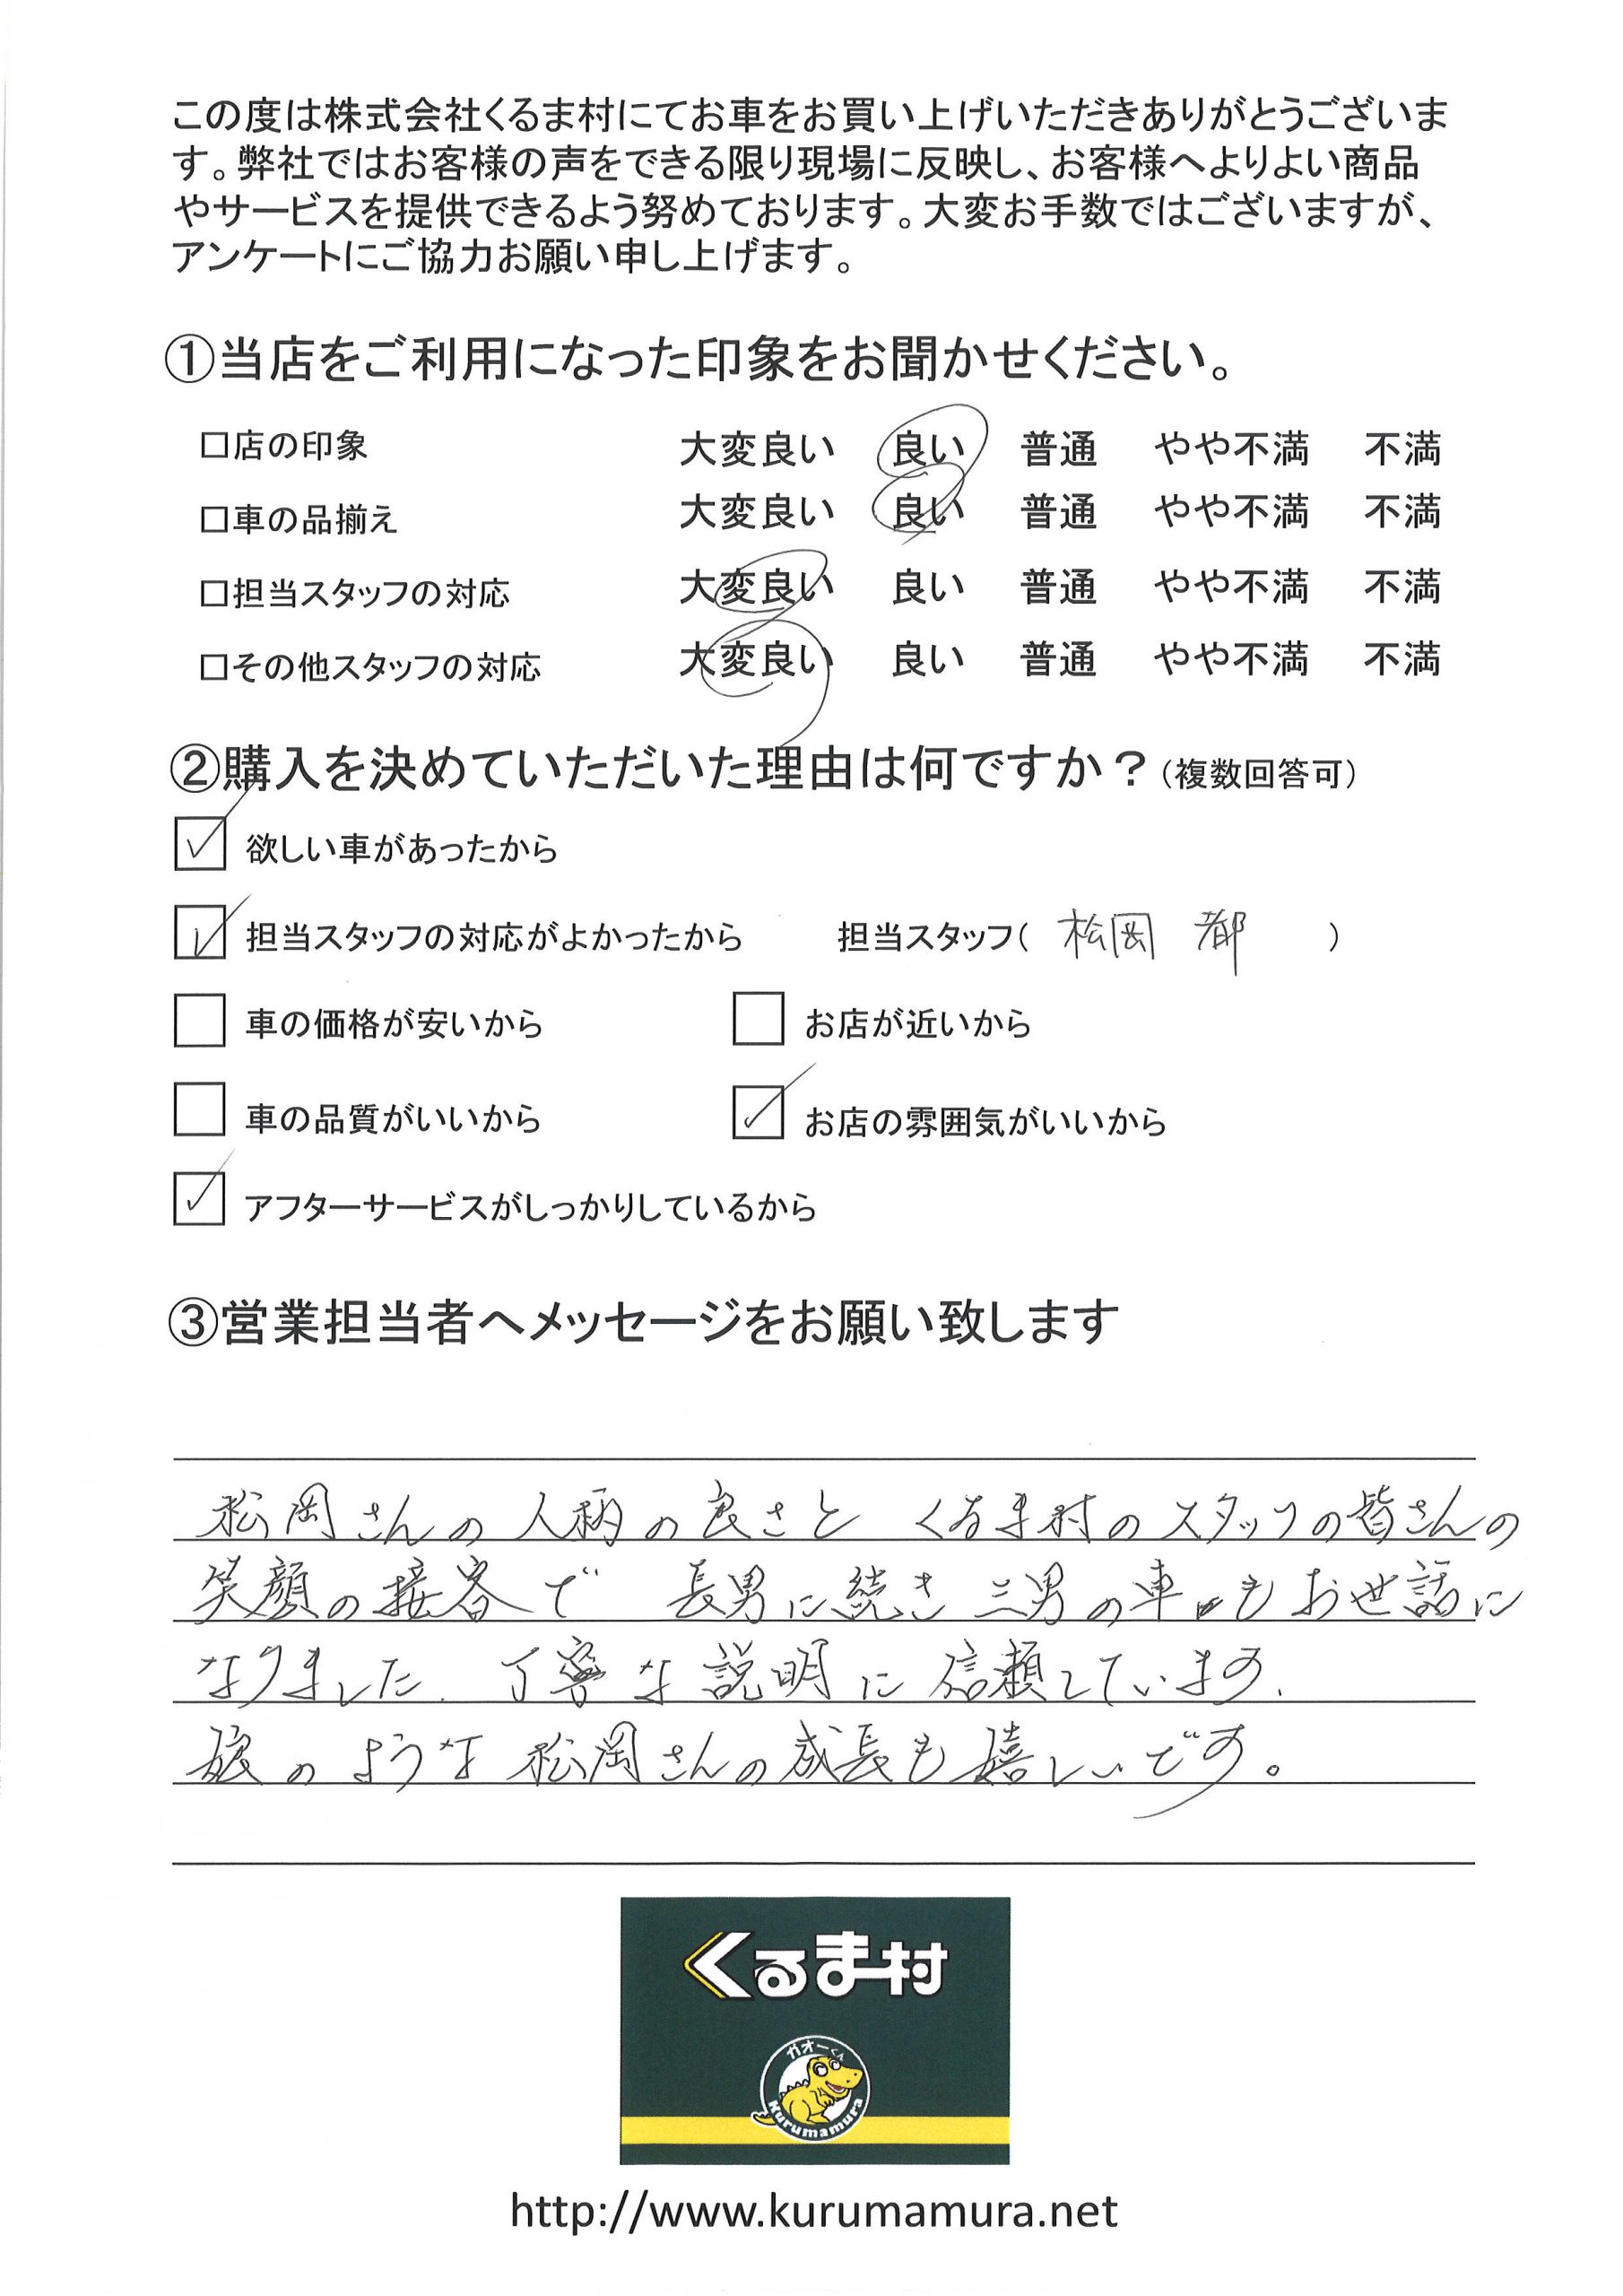 この度は株式会社くるま村にてお車をお買い上げいただきありがとうございま
す。弊社ではお客様の声をできる限り現場に反映し、お客様へよりよい商品
やサービスを提供できるよう努めております。大変お手数ではございますが、
アンケートにご協力お願い申し上げます。
①当店をご利用になった印象をお聞かせください。
□店の印象 大変良い 良い 普通 やや不満 不満
□車の品揃え 大変良い 良い 普通 やや不満 不満
□担当スタッフの対応 大変良い 良い 普通 やや不満 不満
□その他スタッフの対応 大変良い 良い 普通 やや不満 不満
②購入を決めていただいた理由は何ですか？（複数回答可）
☑ 欲しい車があったから
☑ 担当スタッフの対応がよかったから 担当スタッフ（ 松岡 都 ）
□ 車の価格が安いから □ お店が近いから
□ 車の品質がいいから ☑ お店の雰囲気がいいから
☑ アフターサービスがしっかりしているから
③営業担当者へメッセージをお願い致します
松岡さんの人柄の良さと くるま村のスタッフの皆さんの
笑顔の接客で 長男に続き 三男の車もお世話に
なりました. 丁寧な説明に信頼しています.
娘のような松岡さんの成長も嬉しいです。
くるま村
ガオーくん
kurumamura
http://www.kurumamura.net